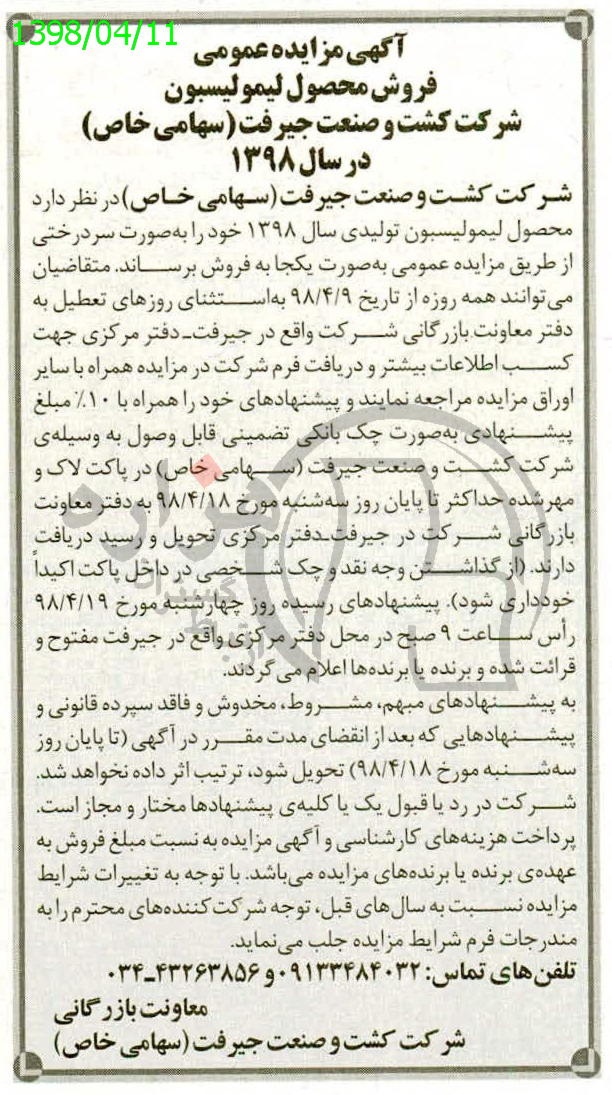 1398/04/11
آگهی مزایده عمومی
فروش محصول لیمولیسبون
شرکت کشت و صنعت جیرفت (سهامی خاص)
در سال ۱۳۹۸
شرکت کشت و صنعت جیرفت (سهامی خاص) در نظر دارد
محصول لیمولیسبون تولیدی سال ۱۳۹۸ خود را به‌صورت سردرختی
از طریق مزایده عمومی به‌صورت یکجا به فروش برساند. متقاضیان
می‌توانند همه روزه از تاریخ ۹۸/۴/۹ به‌استثنای روزهای تعطیل به
دفتر معاونت بازرگانی شرکت واقع در جیرفت-دفتر مرکزی جهت
کسب اطلاعات بیشتر و دریافت فرم شرکت در مزایده همراه با سایر
اوراق مزایده مراجعه نمایند و پیشنهادهای خود را همراه با ۱۰٪ مبلغ
پیشنهادی به‌صورت چک بانکی تضمینی قابل وصول به وسیله‌ی
شرکت کشت و صنعت جیرفت (سهامی خاص) در پاکت لاک و
مهر شده حداکثر تا پایان روز سه‌شنبه مورخ ۹۸/۴/۱۸ به دفتر معاونت
بازرگانی شرکت در جیرفت-دفتر مرکزی تحویل و رسید دریافت
دارند. (از گذاشتن وجه نقد و چک شخصی در داخل پاکت اکیداً
خودداری شود). پیشنهادهای رسیده روز چهارشنبه مورخ ۹۸/۴/۱۹
رأس ساعت ۹ صبح در محل دفتر مرکزی واقع در جیرفت مفتوح و
قرائت شده و برنده یا برنده‌ها اعلام می‌گردند.
به پیشنهادهای مبهم، مشروط، مخدوش و فاقد سپرده قانونی و
پیشنهادهایی که بعد از انقضای مدت مقرر در آگهی (تا پایان روز
سه‌شنبه مورخ ۹۸/۴/۱۸) تحویل شود، ترتیب اثر داده نخواهد شد.
شرکت در رد یا قبول یک یا کلیه‌ی پیشنهادها مختار و مجاز است.
پرداخت هزینه‌های کارشناسی و آگهی مزایده به نسبت مبلغ فروش به
عهده‌ی برنده یا برنده‌های مزایده می‌باشد. با توجه به تغییرات شرایط
مزایده نسبت به سال‌های قبل، توجه شرکت‌کننده‌های محترم را به
مندرجات فرم شرایط مزایده جلب می‌نماید.
تلفن‌های تماس: ۰۹۱۳۳۴۸۴۰۳۲ و ۴۳۲۶۳۸۵۶-۰۳۴
معاونت بازرگانی
شرکت کشت و صنعت جیرفت (سهامی خاص)